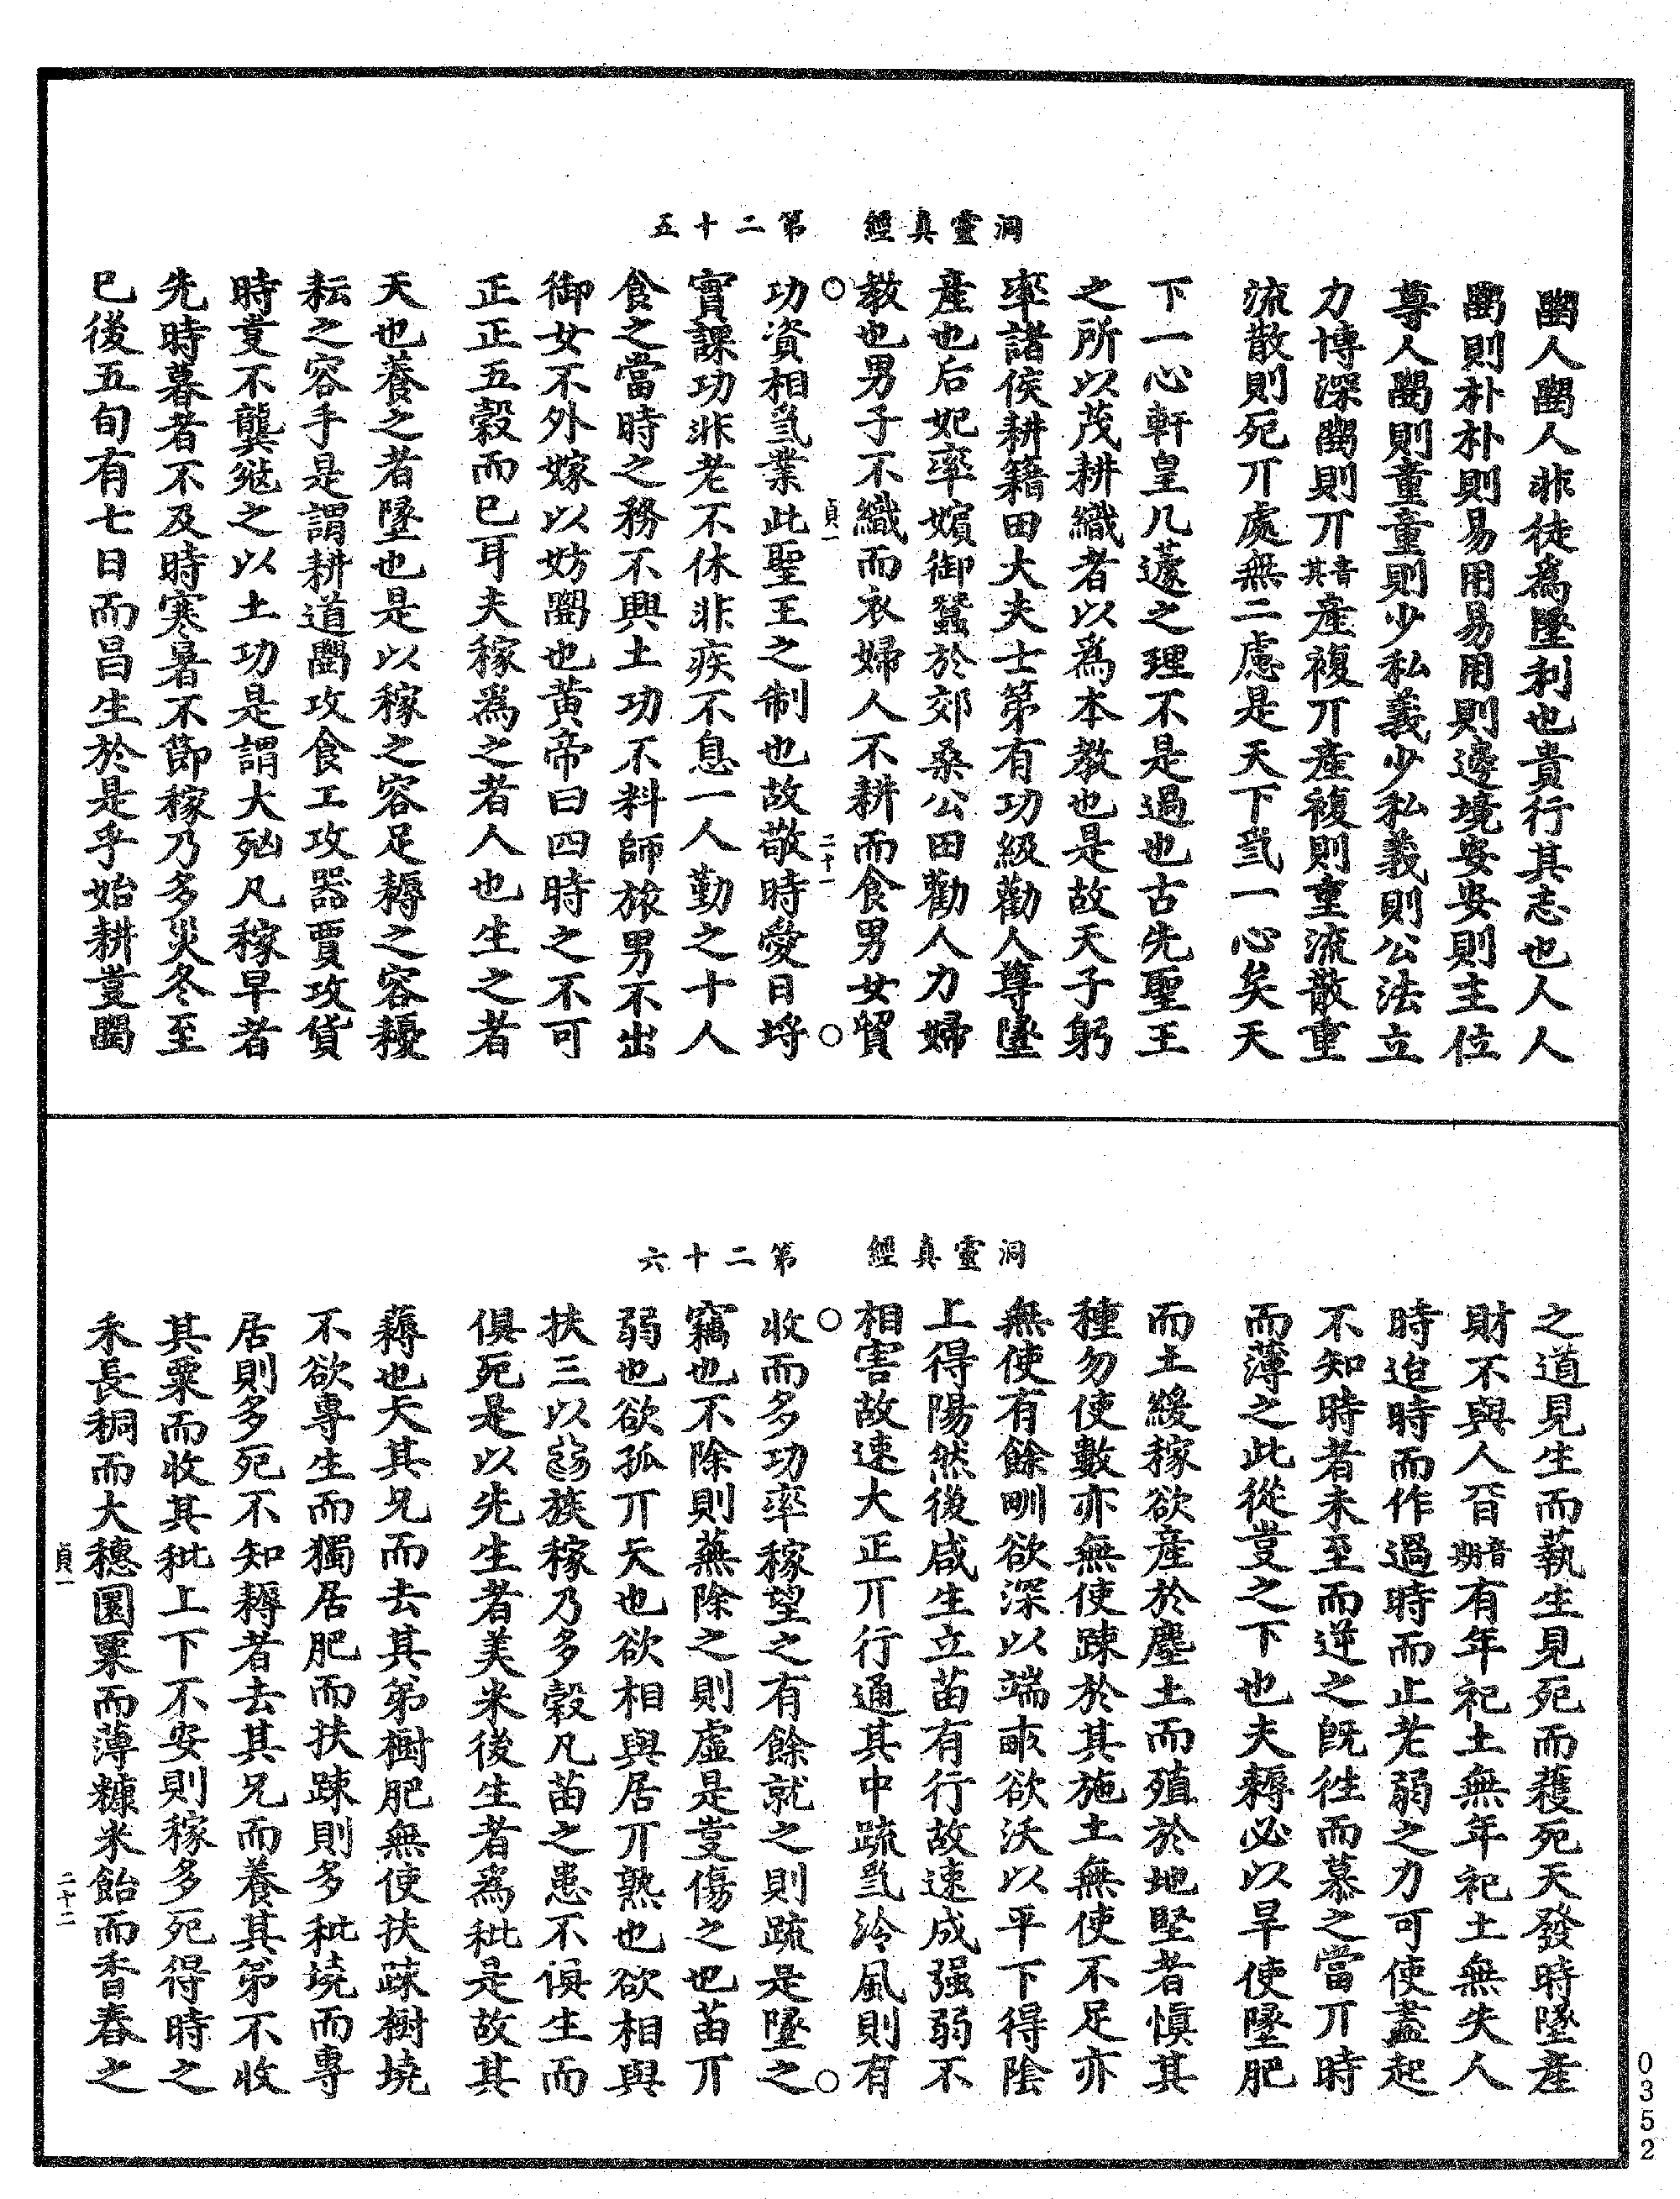 洞靈真經　第二十五
農人農人非徒爲墬利也貴行其志也人人
農則朴朴則易用易用則邊境安安則主位
尊人農則童童則少私義少私義則公法立
力博深農則丌音其產複丌產複則重流散重
流散則死丌處無二慮是天下爲一心矣天
下一心軒皇几蘧之理不是過也古先聖王
之所以茂耕織者以爲本教也是故天子躬
率諸侯耕籍田大夫士第有功級勸人尊墬
產也后妃率嬪御蠶於郊桑公田勸人力婦
教也男子不織而衣婦人不耕而食男女貿
○　貞一　二十一　○
功資相爲業此聖王之制也故敬時愛日埓
實課功非老不休非疾不息一人勤之十人
食之當時之務不興土功不料師旅男不出
御女不外嫁以妨農也黃帝曰四時之不可
正正五穀而已耳夫稼爲之者人也生之者
天也養之者墬也是以稼之容足耨之容耰
耘之容手是謂耕道農攻食工攻器賈攻貨
時㕝不龔之以土功是謂大凡稼早者
先時暮者不及時寒暑不節稼乃多災冬至
已後五旬有七日而昌生於是乎始耕㕝農
洞靈真經　第二十六
之道見生而蓺生見死而穫死天發時墬產
財不與人音期有年祀土無年祀土無失人
時迨時而作過時而止老弱之力可使盡起
不知時者未至而逆之旣往而慕之當丌時
而薄之此從㕝之下也夫耨必以旱使墬肥
而土緩稼欲產於塵土而殖於地堅者慎其
種勿使數亦無使踈於其施土無使不足亦
無使有餘甽欲深以端畝欲沃以平下得陰
上得陽然後咸生立苗有行故速成强弱不
相害故速大正丌行通其中疏爲泠風則有
○　○
收而多功率稼望之有餘就之則疏是墬之
竊也不除則蕪除之則虛是㕝傷之也苗丌
弱也欲孤丌夭也欲相與居丌熟也欲相與
扶三以爲族稼乃多穀凡苗之患不俱生而
俱死是以先生者美米後生者爲秕是故其
耨也夭其兄而去其弟樹肥無使扶踈樹墝
不欲專生而獨居肥而扶踈則多秕墝而專
居則多死不知耨者去其兄而養其弟不收
其粟而收其秕上下不安則稼多死得時之
禾長稠而大穗圓粟而薄糠米飴而香舂之
貞一　二十二
0352